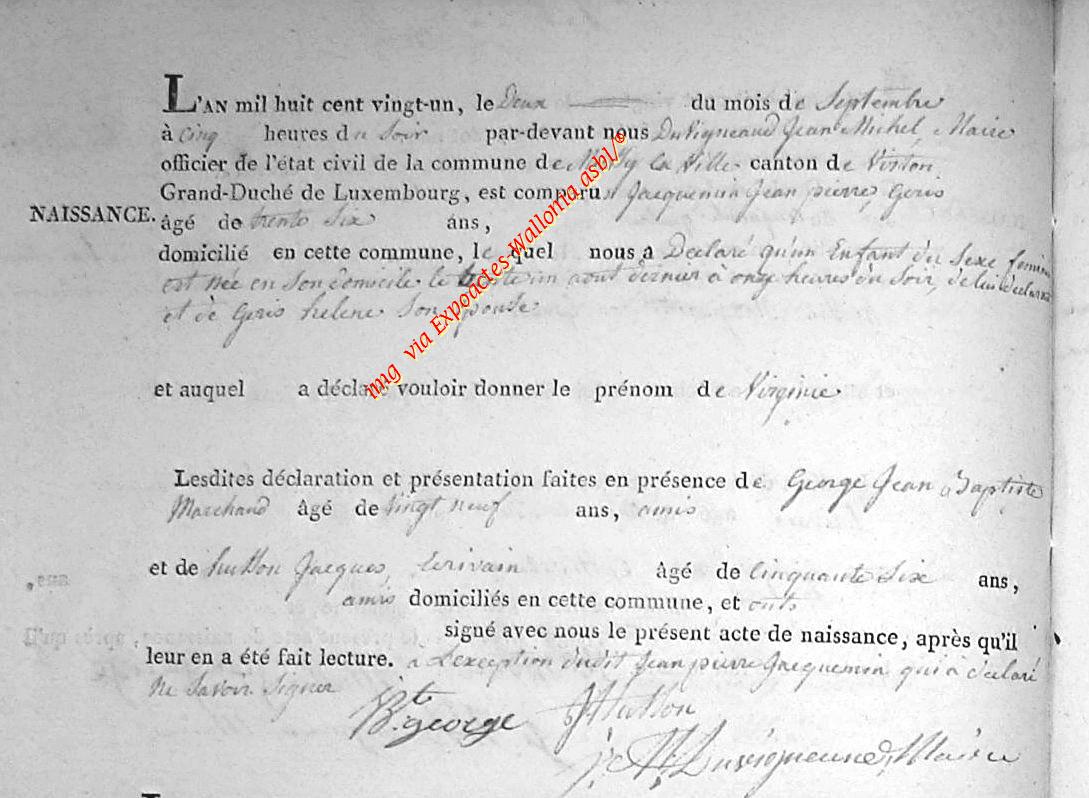 L'AN mil huit cent vingt-un, le Deux du mois de Septembre
à Cinq heures du Soir par-devant nous Duvigneaud Jean Michel Maire
officier de l'état civil de la commune de la Ville canton de Virton
Grand-Duché de Luxembourg, est comparu Jacquemin Jean pierre
NAISSANCE. âgé de trente Six ans,
domicilié en cette commune, lequel nous a Declaré qu'un Enfant du Sexe feminin
est née en Son domicile le trente un aout dernier à onze heures du Soir, de lui declarant
et de Goris helene Son Epouse
et auquel a déclaré vouloir donner le prénom de Virginie
Lesdites déclaration et présentation faites en présence de George Jean Baptiste
Marchand âgé de Vingt neuf ans, amis
et de hutton Jacques Ecrivain âgé de Cinquante Six ans,
amis domiciliés en cette commune, et onts
signé avec nous le présent acte de naissance, après qu'il
leur en a été fait lecture. à L'exception dudit Jean pierre Jacquemin qui à déclaré
Ne Savoir Signer
JBte george Hutton
Duvigneaud, Maire
img via Expoactes-Wallonia asbl/®